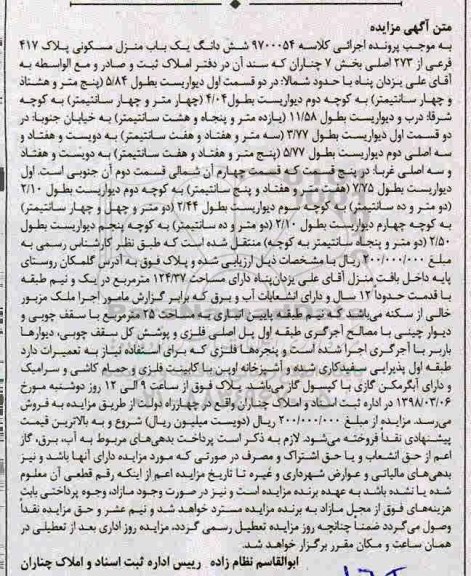 متن آگهی مزایده
به موجب پرونده اجرائی کلاسه ۹۷۰۰۰۵۴ شش دانگ یک باب منزل مسکونی پلاک ۴۱۷
فرعی از ۲۷۳ اصلی بخش ۷ چناران که سند آن در دفتر املاک ثبت و صادر و مع الواسطه به
آقای علی یزدان پناه با حدود شمالا: در دو قسمت اول دیواریست بطول ۵/۸۴ (پنج متر و هشتاد
و چهار سانتیمتر) به کوچه دوم دیواریست بطول ۴/۰۴ (چهار متر و چهار سانتیمتر) به کوچه
شرقا: درب و دیواریست بطول ۱۱/۵۸ (یازده متر و پنجاه و هشت سانتیمتر) به خیابان جنوبا: در
دو قسمت اول دیواریست بطول ۳/۷۷ (سه متر و هفتاد و هفت سانتیمتر) به دویست و هفتاد و
سه اصلی دوم دیواریست بطول ۵/۷۷ (پنج متر و هفتاد و هفت سانتیمتر) به دویست و هفتاد
و سه اصلی غربا: در پنج قسمت که قسمت چهارم آن شمالی قسمت دوم آن جنوبی است. اول
دیواریست بطول ۷/۷۵ (هفت متر و هفتاد و پنج سانتیمتر) به کوچه دوم دیواریست بطول ۲/۱۰
(دو متر و ده سانتیمتر) به کوچه سوم دیواریست بطول ۲/۴۴ (دو متر و چهل و چهار سانتیمتر)
به کوچه چهارم دیواریست بطول ۲/۱۰ (دو متر و ده سانتیمتر) به کوچه پنجم دیواریست بطول
۲/۵۰ (دو متر و پنجاه سانتیمتر به کوچه) منتقل شده است که طبق نظر کارشناس رسمی به
مبلغ ۲۰۰/۰۰۰/۰۰۰ ریال با مشخصات ذیل ارزیابی شده و پلاک فوق به آدرس گلمکان روستای
پایه داخل بافت منزل آقای علی یزدان‌پناه دارای مساحت ۱۲۴/۳۷ مترمربع در یک و نیم طبقه
با قدمت حدوداً ۱۲ سال و دارای انشعابات آب و برق که برابر گزارش مامور اجرا ملک مزبور
خالی از سکنه می‌باشد که نیم طبقه پایین انباری به مساحت ۲۵ مترمربع با سقف چوبی و
دیوار چینی با مصالح آجرگری طبقه اول پل اصلی فلزی و پوشش کل سقف چوبی، دیوارها
باربر با آجرگری اجرا شده است و پنجره‌ها فلزی که برای استفاده نیاز به تعمیرات دارد
طبقه اول پذیرایی سفیدکاری شده و آشپزخانه اوپن با کابینت فلزی و حمام کاشی و سرامیک
و دارای آبگرمکن گازی با کپسول گاز می‌باشد. پلاک فوق از ساعت ۹ الی ۱۲ روز دوشنبه مورخ
۱۳۹۸/۰۳/۰۶ در اداره ثبت اسناد و املاک چناران واقع در چهارراه دولت از طریق مزایده به فروش
می‌رسد. مزایده از مبلغ ۲۰۰/۰۰۰/۰۰۰ ریال (دویست میلیون ریال) شروع و به بالاترین قیمت
پیشنهادی نقداً فروخته می‌شود. لازم به ذکر است پرداخت بدهی‌های مربوط به آب، برق، گاز
اعم از حق انشعاب و یا حق اشتراک و مصرف در صورتی که مورد مزایده دارای آنها باشد و نیز
بدهی‌های مالیاتی و عوارض شهرداری و غیره تا تاریخ مزایده اعم از اینکه رقم قطعی آن معلوم
شده یا نشده باشد به عهده برنده مزایده است و نیز در صورت وجود مازاد، وجوه پرداختی بابت
هزینه‌های فوق از محل مازاد به برنده مزایده مسترد خواهد شد و نیم عشر و حق مزایده نقداً
وصول می‌گردد ضمنا چنانچه روز مزایده تعطیل رسمی گردد، مزایده روز اداری بعد از تعطیلی در
همان ساعت و مکان مقرر برگزار خواهد شد.
ابوالقاسم نظام زاده رییس اداره ثبت اسناد و املاک چناران